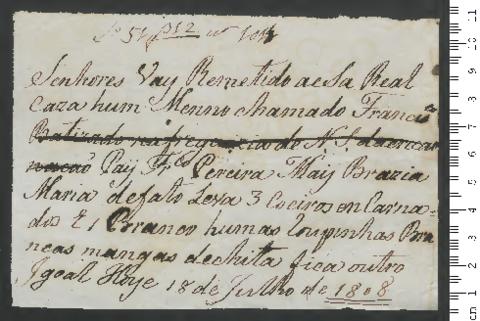 Senhores Vay Remetido a esa Real
Caza hum Menno chamado Francisco
Batizado na freguezia do N. S. da encar
nacaõ Pay Fr.co Pereira May Brazia
Maria de fato Leva 3 Coeiros en Carna-
dos E 1 Branco humas Roupinhas Bra
ncas mangas de chita fica outro
Igoal Hoje 18 de Julho de 1808
cm 1 2 3 4 5 6 7 8 9 10 11